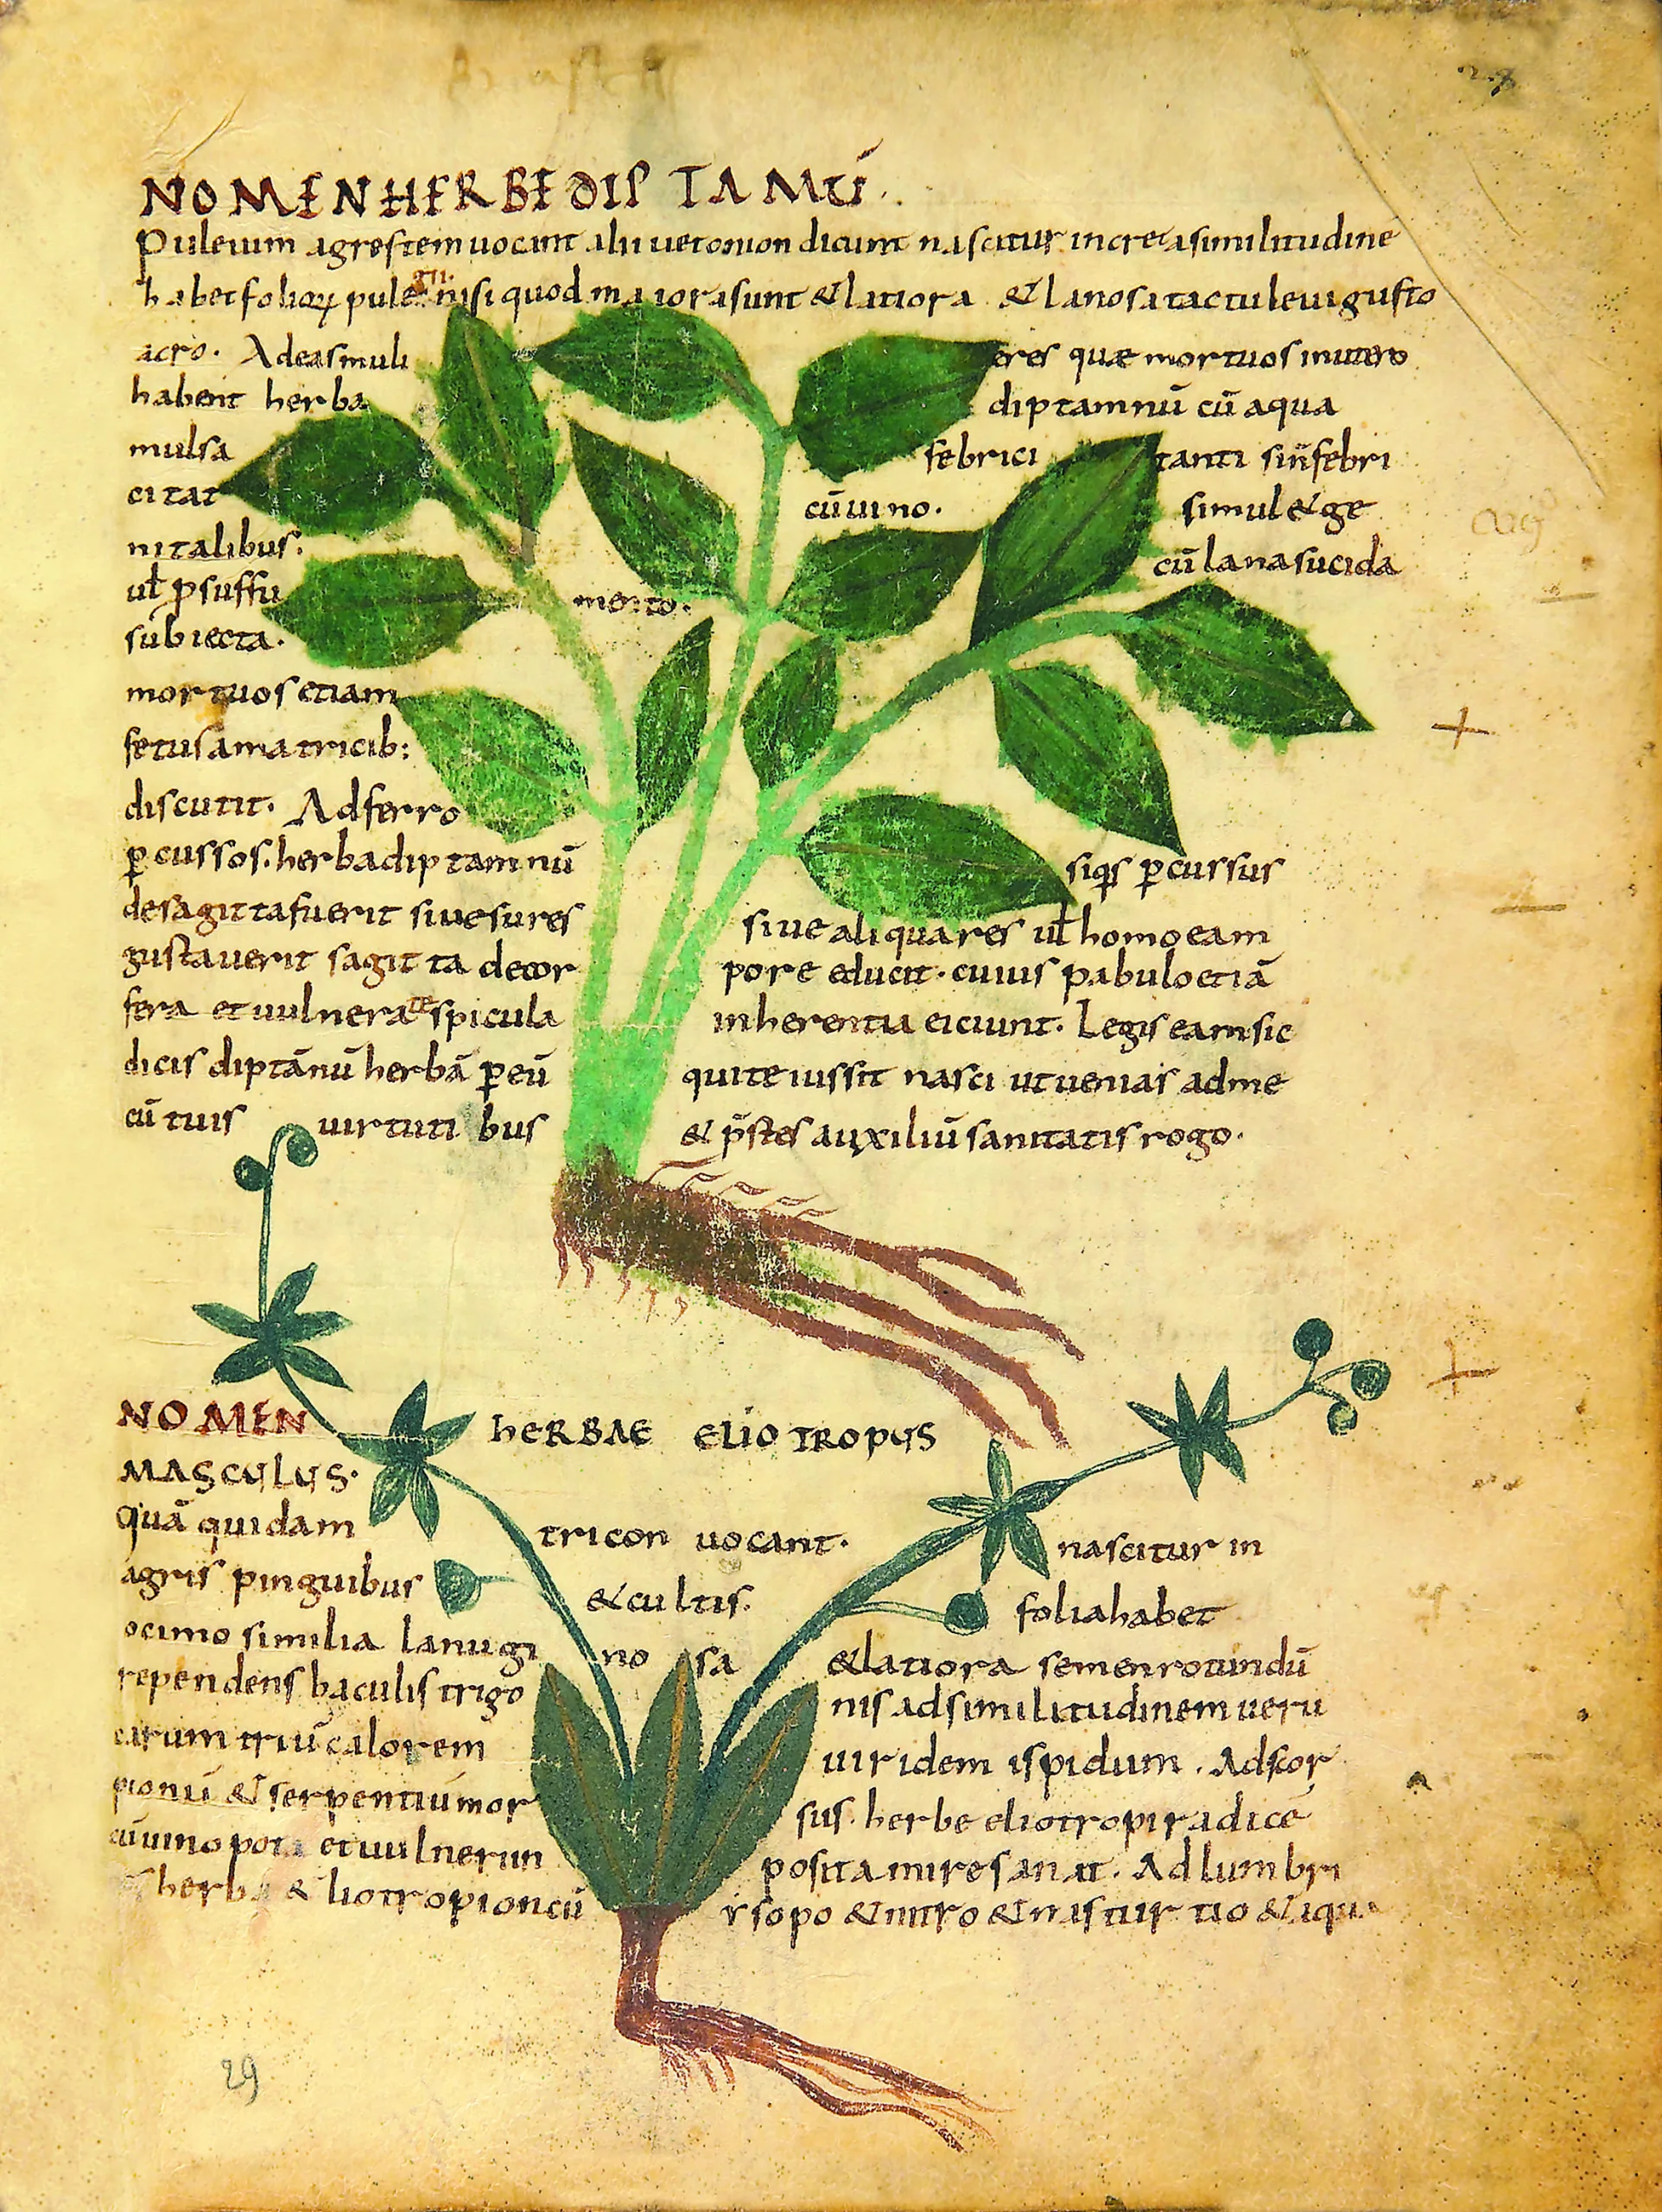 NOMEN HERBE DIPTAMŪ.
Puleium agrestem uocant alii uetonion dicunt nascitur in creta similitudine
habet folioꝝ puleii nisi quod maiora sunt & latiora & lanosa tactu leui gusto
acro. Ad eas muli eres quæ mortuos in utero
habent herba diptamnū cū aqua
mulsa febrici tanti sin̄ febri
citat cū uino. simul & ge
nitalibus.
uł ꝑ suffu mento. cū lana sucida
subiecta.
mortuos etiam
fetus a matricib;
discutit. Ad ferro
ꝑcussos. herba diptamnū siqs ꝑcussus
de sagitta fuerit siue sures siue aliqua res uł homo eam
gustauerit sagitta decor pore educit. cuius pabulo etiā
fera et uulnerate spicula inherentia eiciunt. Legis eam sic
dicis diptānū herbā ꝑ eū qui te iussit nasci ut uenias ad me
cū tuis uirtutibus & p̄stes auxiliū sanitatis rogo.
NOMEN HERBAE ELIOTROPUS
MASCULUS.
Quā quidam tricon uocant. nascitur in
agris pinguibus & cultis. folia habet
ocimo similia lanugi no sa & latiora semen rotundū
rependens baculis trigo nis ad similitudinem ueru
carum triū calorem uiridem ispidum. Ad scor
pionū & serpentiū mor sus. herbe eliotropi radicē
cū uino pota et uulnerum posita mire sanat. Ad lumbri
herba & liotropion cū ysopo & nitro & nasturtio & aqua
29